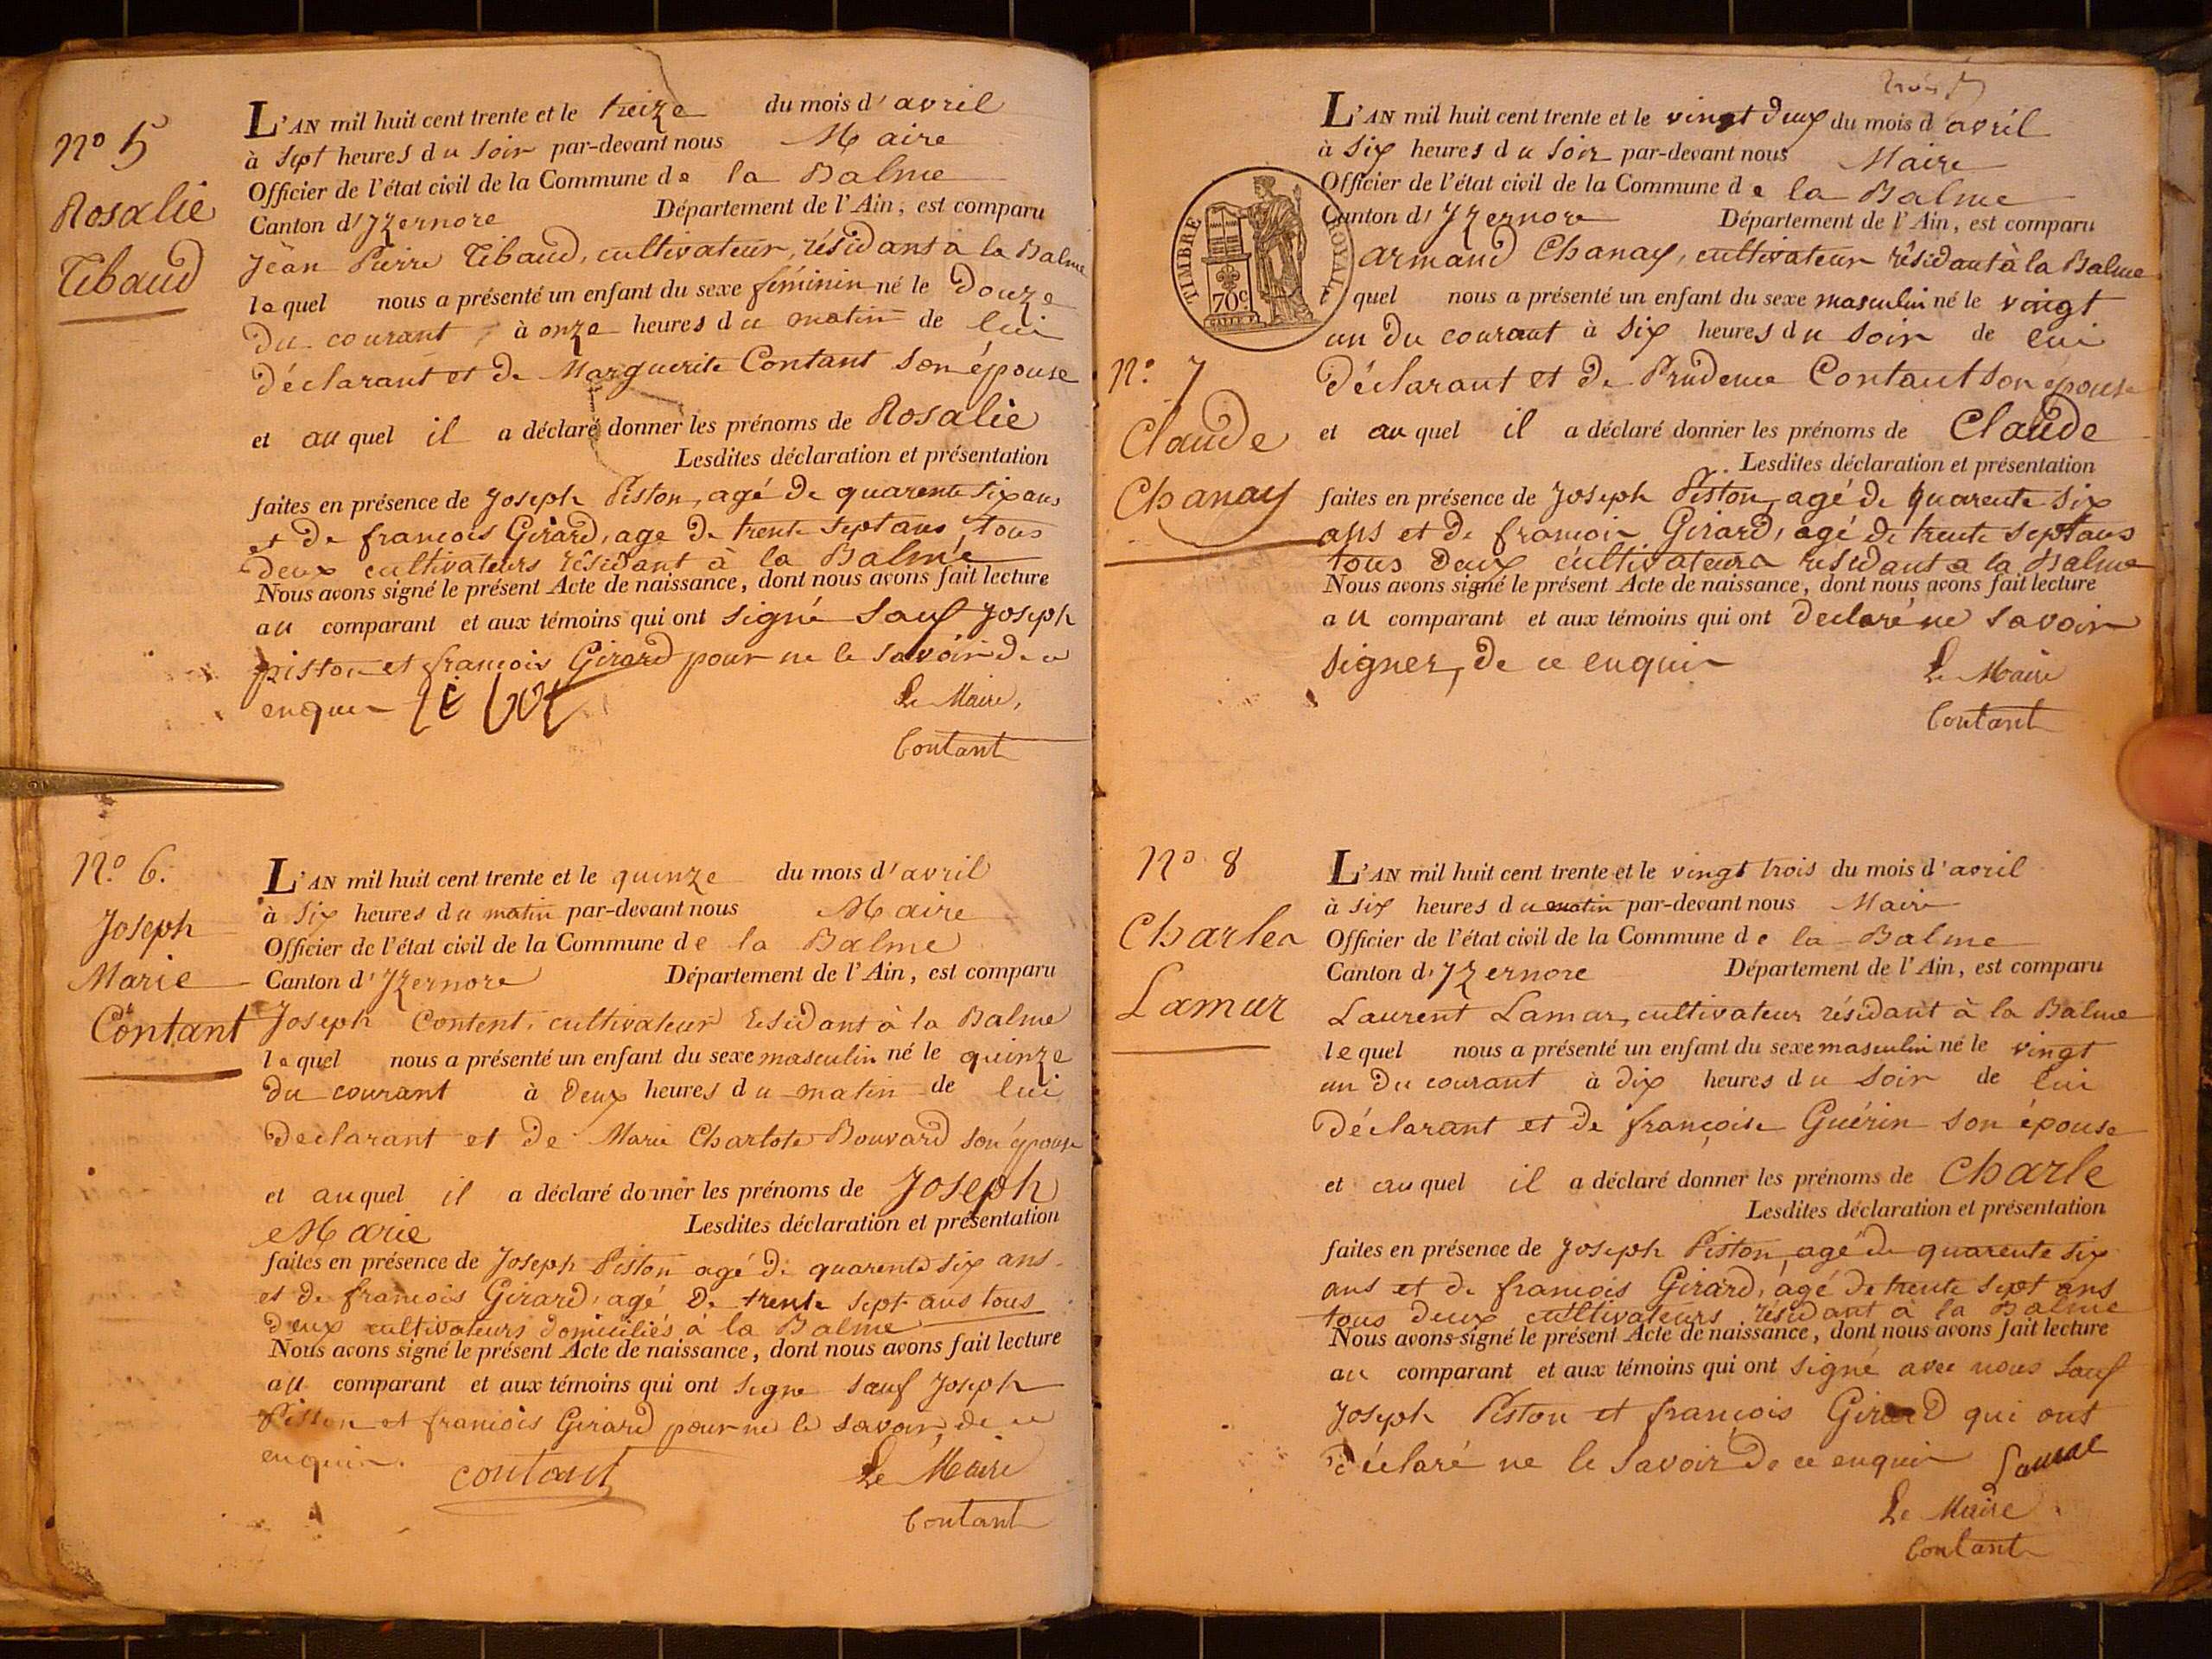 nº 5
Rosalie
Tibaud
L'AN mil huit cent trente et le treize du mois d'avril
à sept heures du soir par-devant nous Maire
Officier de l'état civil de la Commune de la Balme
Canton d'Yzernore Département de l'Ain, est comparu
Jean Pierre Tibaud, cultivateur, résidant à la Balme
lequel nous a présenté un enfant du sexe féminin né le Douze
du courant à onze heures du matin de lui
déclarant et de Marguerite Contant son épouse
et auquel il a déclaré donner les prénoms de Rosalie
Lesdites déclaration et présentation
faites en présence de Joseph Piston, agé de quarente six ans
et de francois Girard, age de trente sept ans, tous
deux cultivateurs résidant à la Balme
Nous avons signé le présent Acte de naissance, dont nous avons fait lecture
au comparant et aux témoins qui ont signé sauf Joseph
piston et francois Girard pour ne le savoir de ce
enquis
Le Maire,
Contant
Nº 6.
Joseph
Marie
Contant
L'AN mil huit cent trente et le quinze du mois d'avril
à six heures du matin par-devant nous Maire
Officier de l'état civil de la Commune de la Balme
Canton d'Yzernore Département de l'Ain, est comparu
Joseph Content, cultivateur résidant à la Balme
lequel nous a présenté un enfant du sexe masculin né le quinze
du courant à deux heures du matin de lui
declarant et de Marie Charlote Bouvard son épouse
et auquel il a déclaré donner les prénoms de Joseph
Marie Lesdites déclaration et présentation
faites en présence de Joseph Piston agé de quarente six ans
et de francois Girard, agé de trente sept ans tous
deux cultivateurs domiciliés à la Balme
Nous avons signé le présent Acte de naissance, dont nous avons fait lecture
au comparant et aux témoins qui ont signe sauf Joseph
Piston et francois Girard pour ne le savoir, de ce
enquis.
contant
Le Maire
Contant
trois
TIMBRE ROYAL
70c
L'AN mil huit cent trente et le vingt deux du mois d'avril
à six heures du soir par-devant nous Maire
Officier de l'état civil de la Commune de la Balme
Canton d'Yzernore Département de l'Ain, est comparu
armand Chanay, cultivateur résidant à la Balme
quel nous a présenté un enfant du sexe masculin né le vingt
un du courant à six heures du soir de lui
déclarant et de Prudence Contant son épouse
nº 7
Claude
Chanay
et auquel il a déclaré donner les prénoms de Claude
Lesdites déclaration et présentation
faites en présence de Joseph Piston, agé de quarente six
ans et de francois Girard, agé de trente sept ans
tous deux cultivateurs résidant a la Balme
Nous avons signé le présent Acte de naissance, dont nous avons fait lecture
au comparant et aux témoins qui ont declaré ne savoir
signer, de ce enquis
Le Maire
Contant
Nº 8
Charles
Lamur
L'AN mil huit cent trente et le vingt trois du mois d'avril
à six heures du matin par-devant nous Maire
Officier de l'état civil de la Commune de la Balme
Canton d'Yzernore Département de l'Ain, est comparu
Laurent Lamur, cultivateur résidant à la Balme
lequel nous a présenté un enfant du sexe masculin né le vingt
un du courant à dix heures du soir de lui
déclarant et de françoise Guérin son épouse
et auquel il a déclaré donner les prénoms de Charle
Lesdites déclaration et présentation
faites en présence de Joseph Piston, agé de quarente six
ans et de francois Girard, agé de trente sept ans
tous deux cultivateurs résidant à la Balme
Nous avons signé le présent Acte de naissance, dont nous avons fait lecture
au comparant et aux témoins qui ont signé avec nous sauf
Joseph Piston et françois Girard qui ont
déclaré ne le savoir de ce enquis
Le Maire
Contant